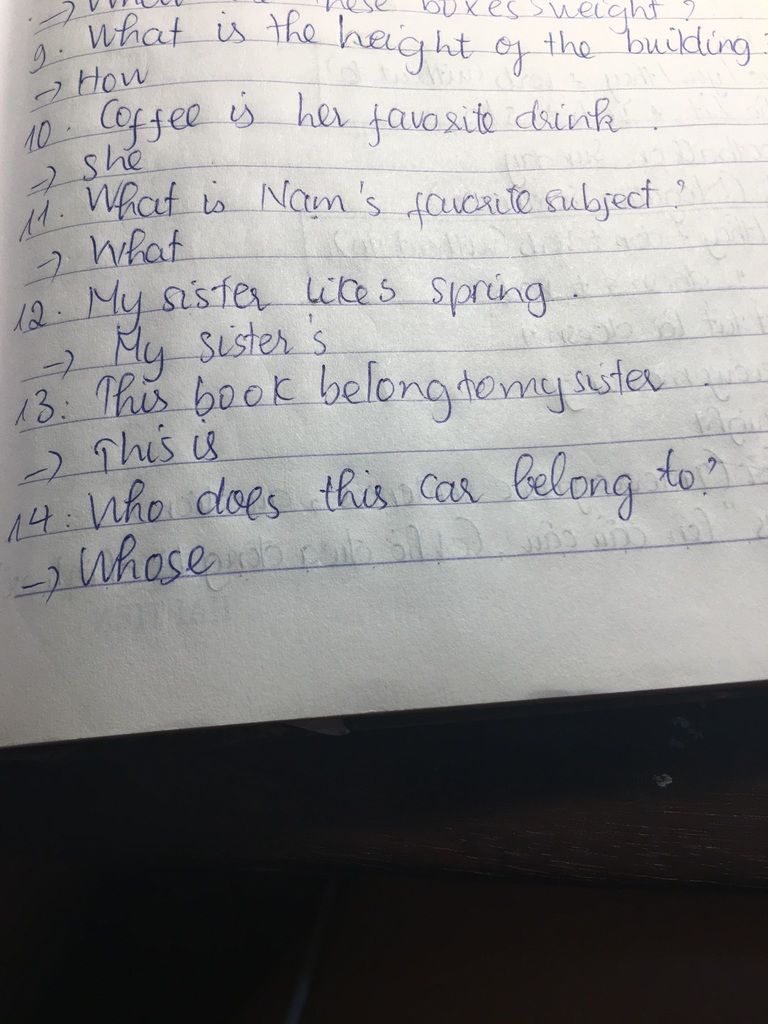 these boxes weight?
9. What is the height of the building
-> How
10. Coffee is her favorite drink.
-> She
11. What is Nam's favorite subject?
-> What
12. My sister likes spring.
-> My sister's
13. This book belong to my sister.
-> This is
14. Who does this car belong to?
-> Whose